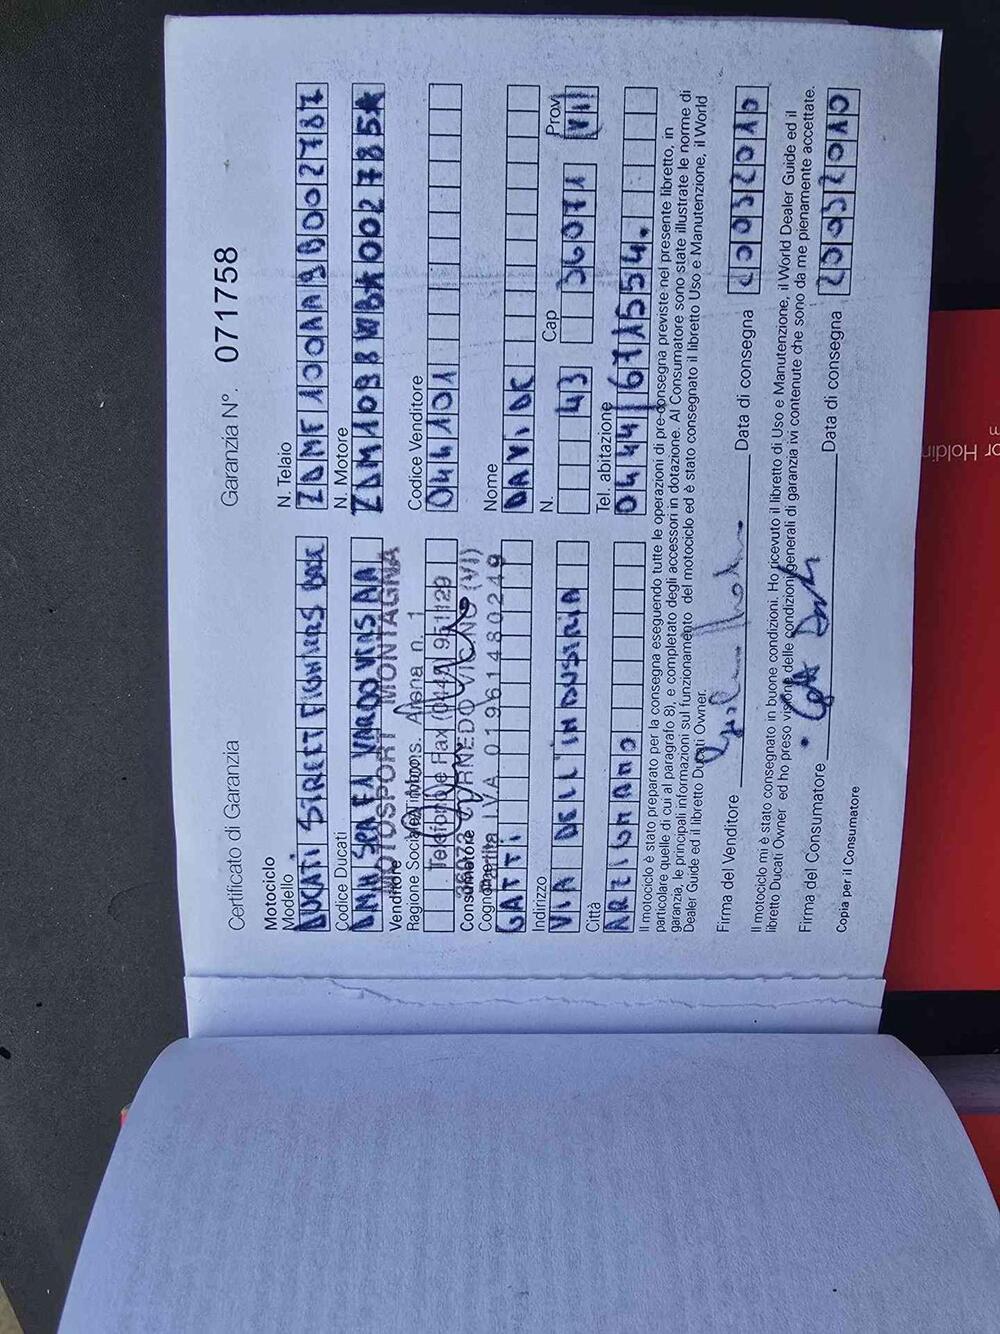 Certificato di Garanzia Garanzia N°. 071758
Motociclo
Modello N. Telaio
DUCATI STREETFIGHTERS
Codice Ducati N. Motore
Venditore
MOTOSPORT MONTAGNA
Ragione Sociale/Timbro Codice Venditore
Arena n. 1
044101
Telefono e Fax (0444) 951129
Consumatore
Partita IVA 01961480249
Cognome Nome
GATTI DAVIDE
Indirizzo N. Cap Prov
VIA DELL'INDUSTRIA 43 36071 VI
Città Tel. abitazione
ARZIGNANO 0444/671554.
Il motociclo è stato preparato per la consegna eseguendo tutte le operazioni di pre-consegna previste nel presente libretto, in
particolare quelle di cui al paragrafo 8), e completato degli accessori in dotazione. Al Consumatore sono state illustrate le norme di
garanzia, le principali informazioni sul funzionamento del motociclo ed è stato consegnato il libretto Uso e Manutenzione, il World
Dealer Guide ed il libretto Ducati Owner.
Firma del Venditore Data di consegna 20032010
Il motociclo mi è stato consegnato in buone condizioni. Ho ricevuto il libretto di Uso e Manutenzione, il World Dealer Guide ed il
libretto Ducati Owner ed ho preso visione delle condizioni generali di garanzia ivi contenute che sono da me pienamente accettate.
Firma del Consumatore Data di consegna 20032010
Copia per il Consumatore